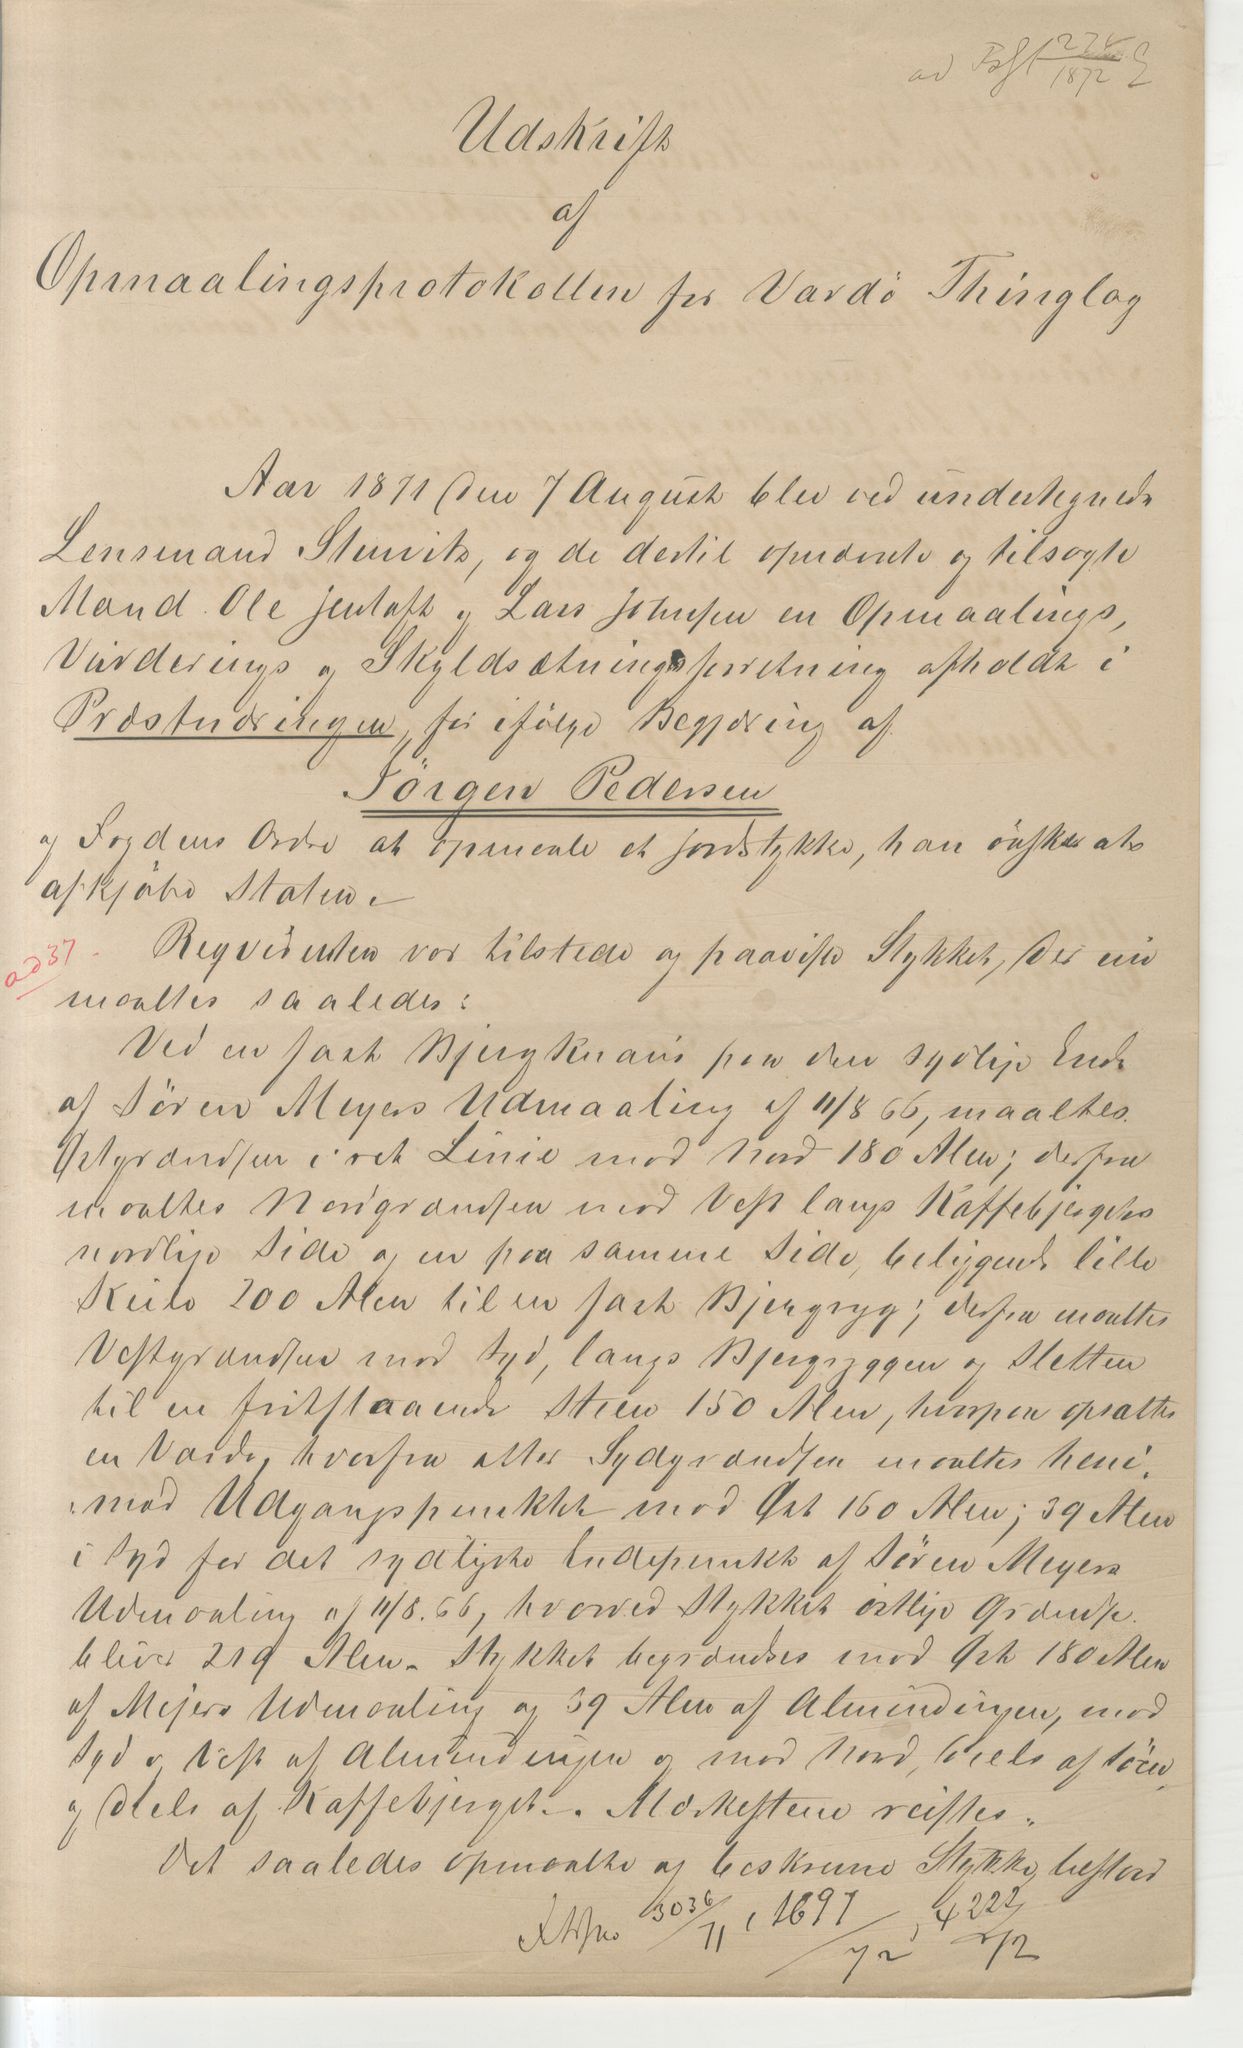 ad 278/1872 E
Udskrift
af
Opmaalingsprotokollen for Vardö Thinglag
Aar 1871 den 7 August blev ved undertegnede
Lensmand Stenvits, og de dertil opnævnte og tilsagte
Mænd Ole Jentoft og Lars Johnsen en Opmaalings,
Vurderings og Skyldsætningsforretning afholdt i
Præstnæringen, for ifölge Begjæring af
Jörgen Pedersen
og Fogdens Ordre at opmaale et Jordstykke, han önsker at
afkjöbe Staten.
ad 37. Reqvirenten var tilstede og paaviste Stykket, der ud
maaltes saaledes:
Ved en fast Bjergknaus paa den sydlige Ende
af Sören Meyers Udmaaling af 11/8 66, maaltes
Østgrændsen i ret Linie mod Nord 180 Alen; derfra
maaltes Nordgrændsen mod Vest langs Kaffebjergets
nordlige Side og en paa samme Side, beliggende lille
Keile 200 Alen til en fast Bjergryg; derfra maaltes
Vestgrændsen mod Syd, langs Bjergryggen og Sletten
til en fritstaaende Steen 150 Alen, hvorpaa opsattes
en Varde, hvorfra atter Sydgrændsen maaltes heni,
mod Udgangspunktet mod Øst 160 Alen; 39 Alen
i Syd for det sydligste Endepunkt af Sören Meyers
Udmaaling af 11/8. 66, hvorved Stykkets östlige Grændse
bliver 219 Alen. Stykket begrændses mod Øst 180 Alen
af Mejers Udmaaling og 39 Alen af Almindingen, mod
Syd og Vest af Almindingen og mod Nord, deels af Söen,
og deels af Kaffebjerget. Mærkestene reistes.
Det saaledes opmaalte og beskrevne Stykke bestaar
3036/71, 1697/72, 4222/72